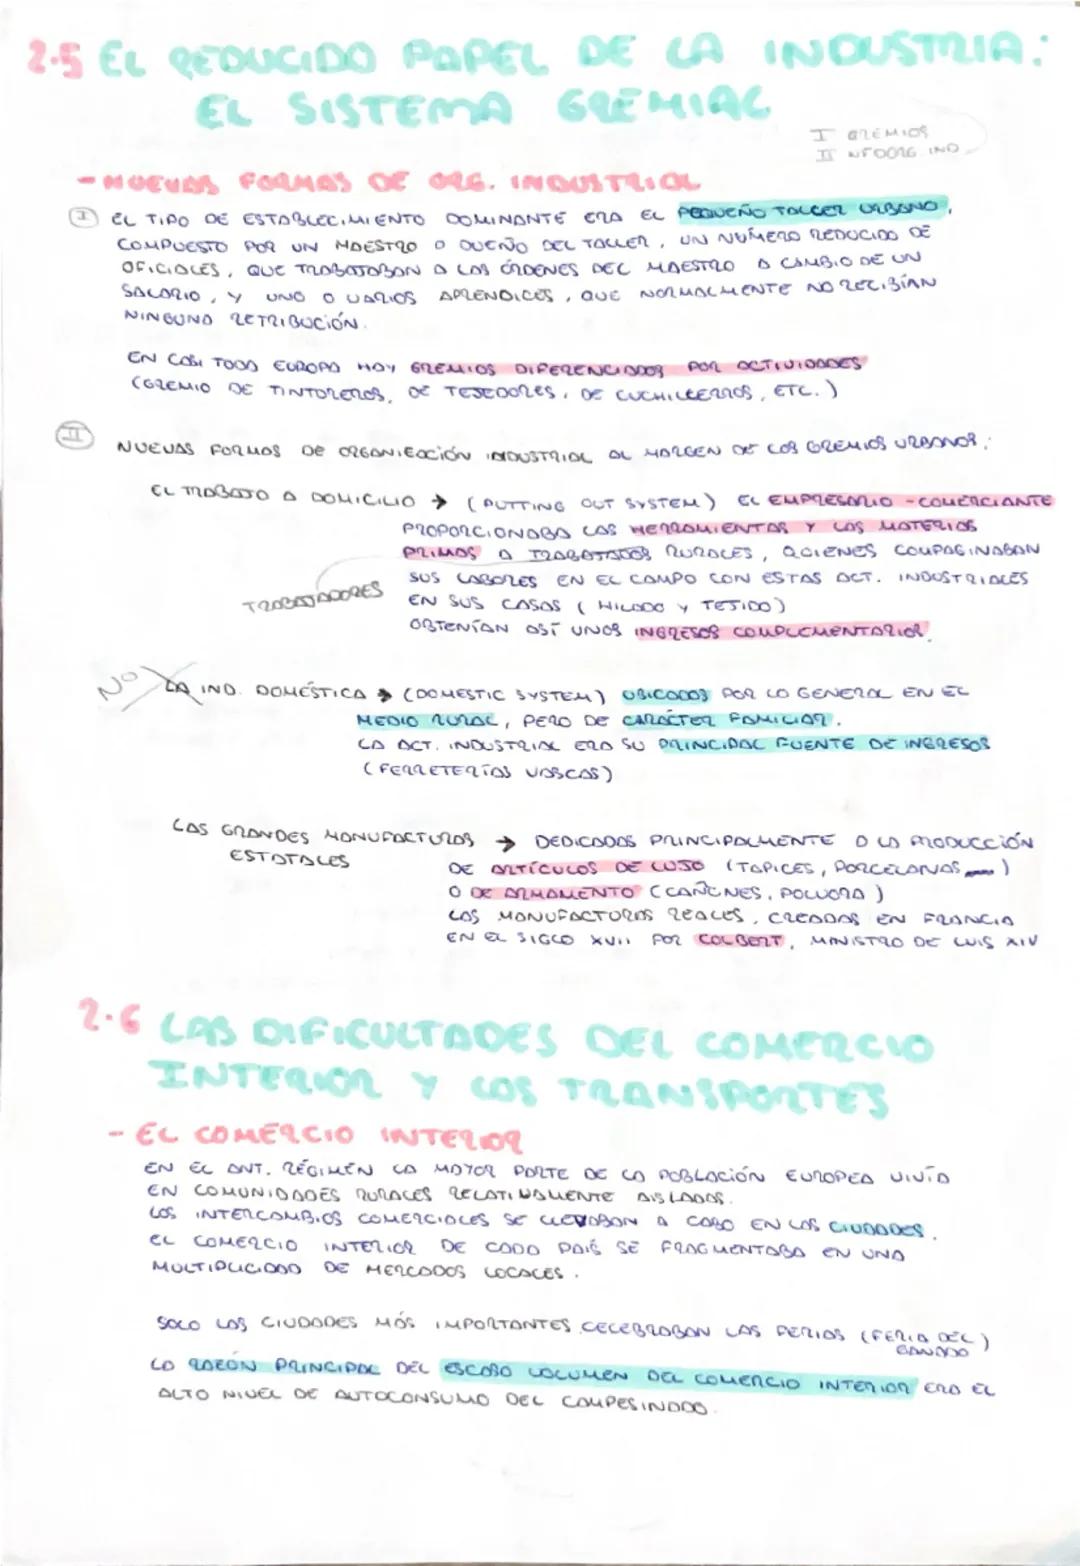 2.5 EL REDUCIDO PAPEL DE LA INDUSTRIA:
EL SISTEMA GREMIAL
I GREMIOS
II NFOORG. IND
- NUEVAS FORMAS DE ORG. INDUSTRIAL
I EL TIPO DE ESTABLECIMIENTO DOMINANTE ERA EL PEQUEÑO TALLER URBANO,
COMPUESTO POR UN MAESTRO O DUEÑO DEL TALLER, UN NÚMERO REDUCIDO DE
OFICIALES, QUE TRABAJABAN A LAS ÓRDENES DEL MAESTRO A CAMBIO DE UN
SALARIO, Y UNO O VARIOS APRENDICES, QUE NORMALMENTE NO RECIBÍAN
NINGUNA RETRIBUCIÓN.
EN CASI TODA EUROPA HAY GREMIOS DIFERENCIADOS POR ACTIVIDADES
(GREMIO DE TINTOREROS, DE TEJEDORES, DE CUCHILLERROS, ETC.)
II NUEVAS FORMAS DE ORGANIZACIÓN INDUSTRIAL AL MARGEN DE LOS GREMIOS URBANOS:
EL TRABAJO A DOMICILIO → (PUTTING OUT SYSTEM) EL EMPRESARIO - COMERCIANTE
PROPORCIONABA LAS HERRAMIENTAS Y LAS MATERIAS
PRIMAS A TRABAJADOS RURALES, QUIENES COMPAGINABAN
SUS LABORES EN EL CAMPO CON ESTAS ACT. INDUSTRIALES
TRABAJADORES
EN SUS CASAS (HILADO Y TEJIDO)
OBTENÍAN ASÍ UNOS INGRESOS COMPLEMENTARIOS.
NO LA IND. DOMÉSTICA → (DOMESTIC SYSTEM) UBICADAS POR LO GENERAL EN EL
MEDIO RURAL, PERO DE CARÁCTER FAMILIAR.
LA ACT. INDUSTRIAL ERA SU PRINCIPAL FUENTE DE INGRESOS
(FERRETERÍAS VASCAS)
LAS GRANDES MANUFACTURAS → DEDICADAS PRINCIPALMENTE A LA PRODUCCIÓN
ESTATALES
DE ARTÍCULOS DE LUJO (TAPICES, PORCELANAS)
O DE ARMAMENTO (CAÑONES, POLVORA)
LAS MANUFACTURAS REALES, CREADAS EN FRANCIA
EN EL SIGLO XVII POR COLBERT, MINISTRO DE LUIS XIV
2.6 LAS DIFICULTADES DEL COMERCIO
INTERIOR Y LOS TRANSPORTES
- EL COMERCIO INTERIOR
EN EL ANT. RÉGIMEN LA MAYOR PARTE DE LA POBLACIÓN EUROPEA VIVÍA
EN COMUNIDADES RURALES RELATIVAMENTE AISLADAS.
LOS INTERCAMBIOS COMERCIALES SE LLEVABAN A CABO EN LAS CIUDADES.
EL COMERCIO INTERIOR DE CADA PAÍS SE FRAGMENTABA EN UNA
MULTIPLICIDAD DE MERCADOS LOCALES.
SOLO LAS CIUDADES MÁS IMPORTANTES CELEBRABAN LAS FERIAS (FERIA DEL)
GANADO
LA RAZÓN PRINCIPAL DEL ESCASO VOLUMEN DEL COMERCIO INTERIOR ERA EL
ALTO NIVEL DE AUTOCONSUMO DEL CAMPESINADO.